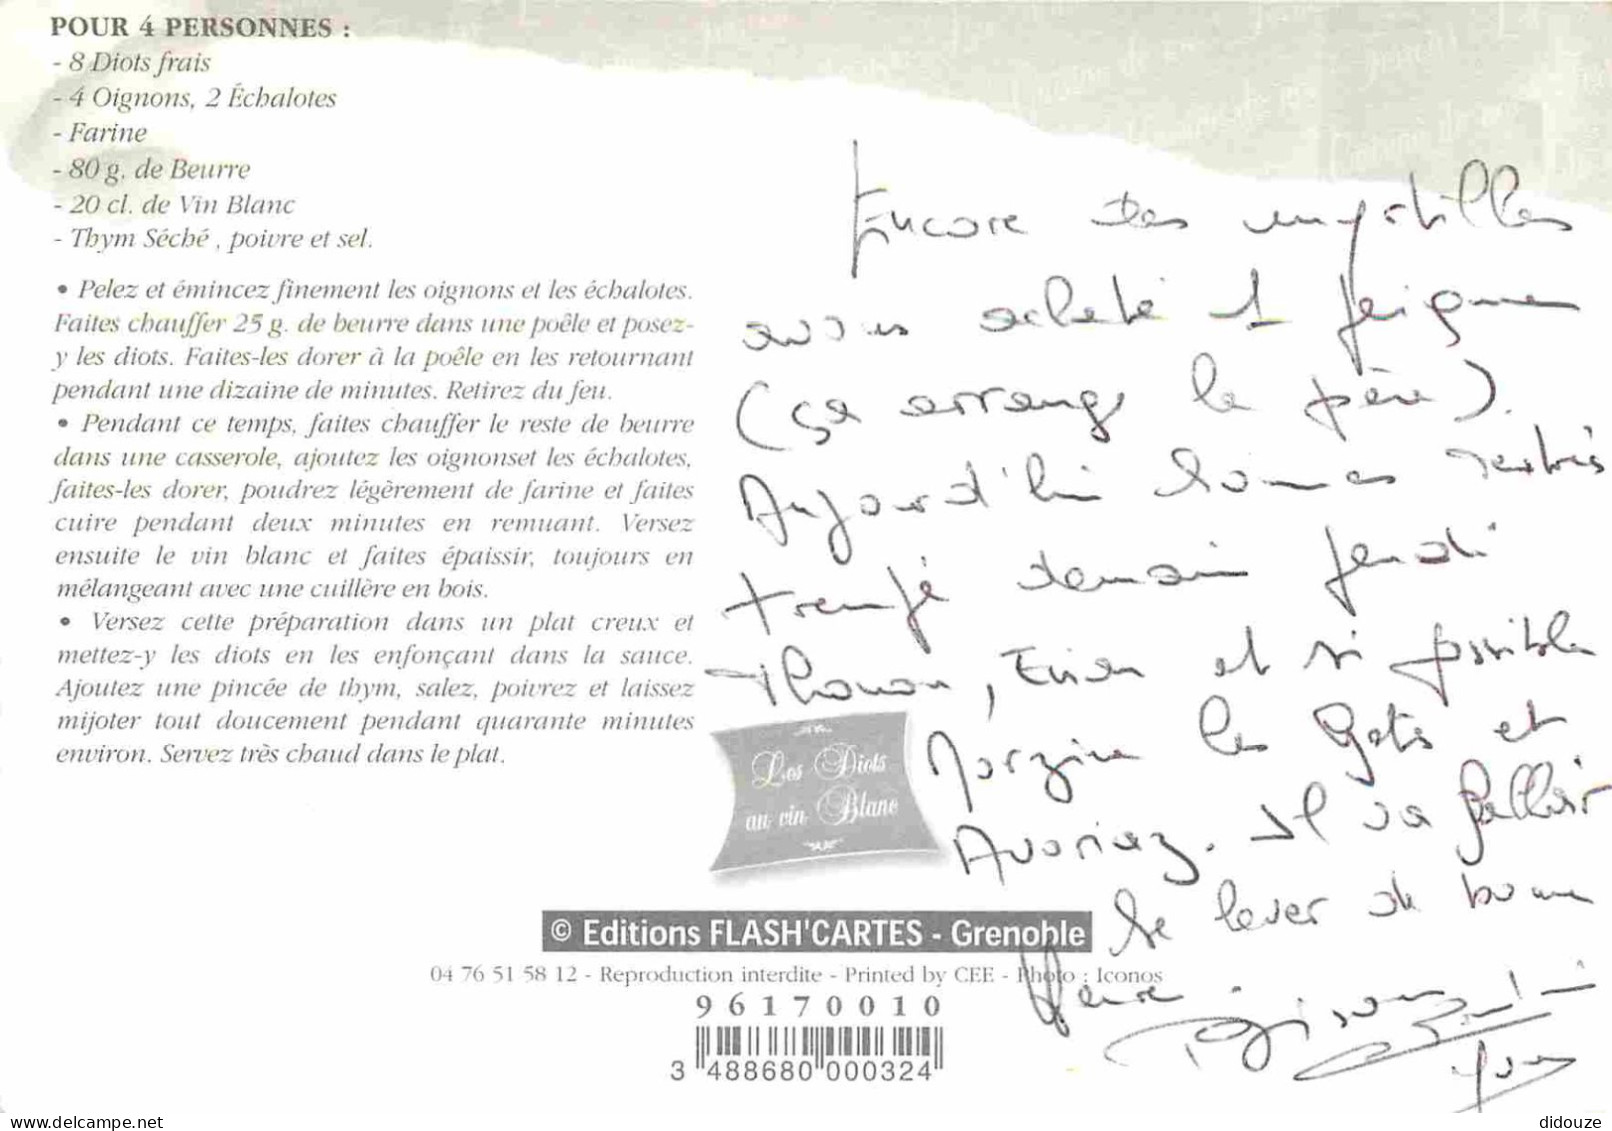 POUR 4 PERSONNES :
- 8 Diots frais
- 4 Oignons, 2 Échalotes
- Farine
- 80 g. de Beurre
- 20 cl. de Vin Blanc
- Thym Séché , poivre et sel.
• Pelez et émincez finement les oignons et les échalotes.
Faites chauffer 25 g. de beurre dans une poêle et posez-
y les diots. Faites-les dorer à la poêle en les retournant
pendant une dizaine de minutes. Retirez du feu.
• Pendant ce temps, faites chauffer le reste de beurre
dans une casserole, ajoutez les oignonset les échalotes,
faites-les dorer, poudrez légèrement de farine et faites
cuire pendant deux minutes en remuant. Versez
ensuite le vin blanc et faites épaissir, toujours en
mélangeant avec une cuillère en bois.
• Versez cette préparation dans un plat creux et
mettez-y les diots en les enfonçant dans la sauce.
Ajoutez une pincée de thym, salez, poivrez et laissez
mijoter tout doucement pendant quarante minutes
environ. Servez très chaud dans le plat.
Les Diots
au vin Blanc
Encore des myrtilles
avons acheté 1 peigne
(ça arrange le père).
Aujourd'hui sommes restés
demain jeudi
Thonon, Evian et si possible
Morzine les Gets et
Avoriaz. Il va falloir
se lever de bonne
Heure.
© Editions FLASH'CARTES - Grenoble
04 76 51 58 12 - Reproduction interdite - Printed by CEE - Photo : Iconos
96170010
3 488680 000324
Yves
didouze